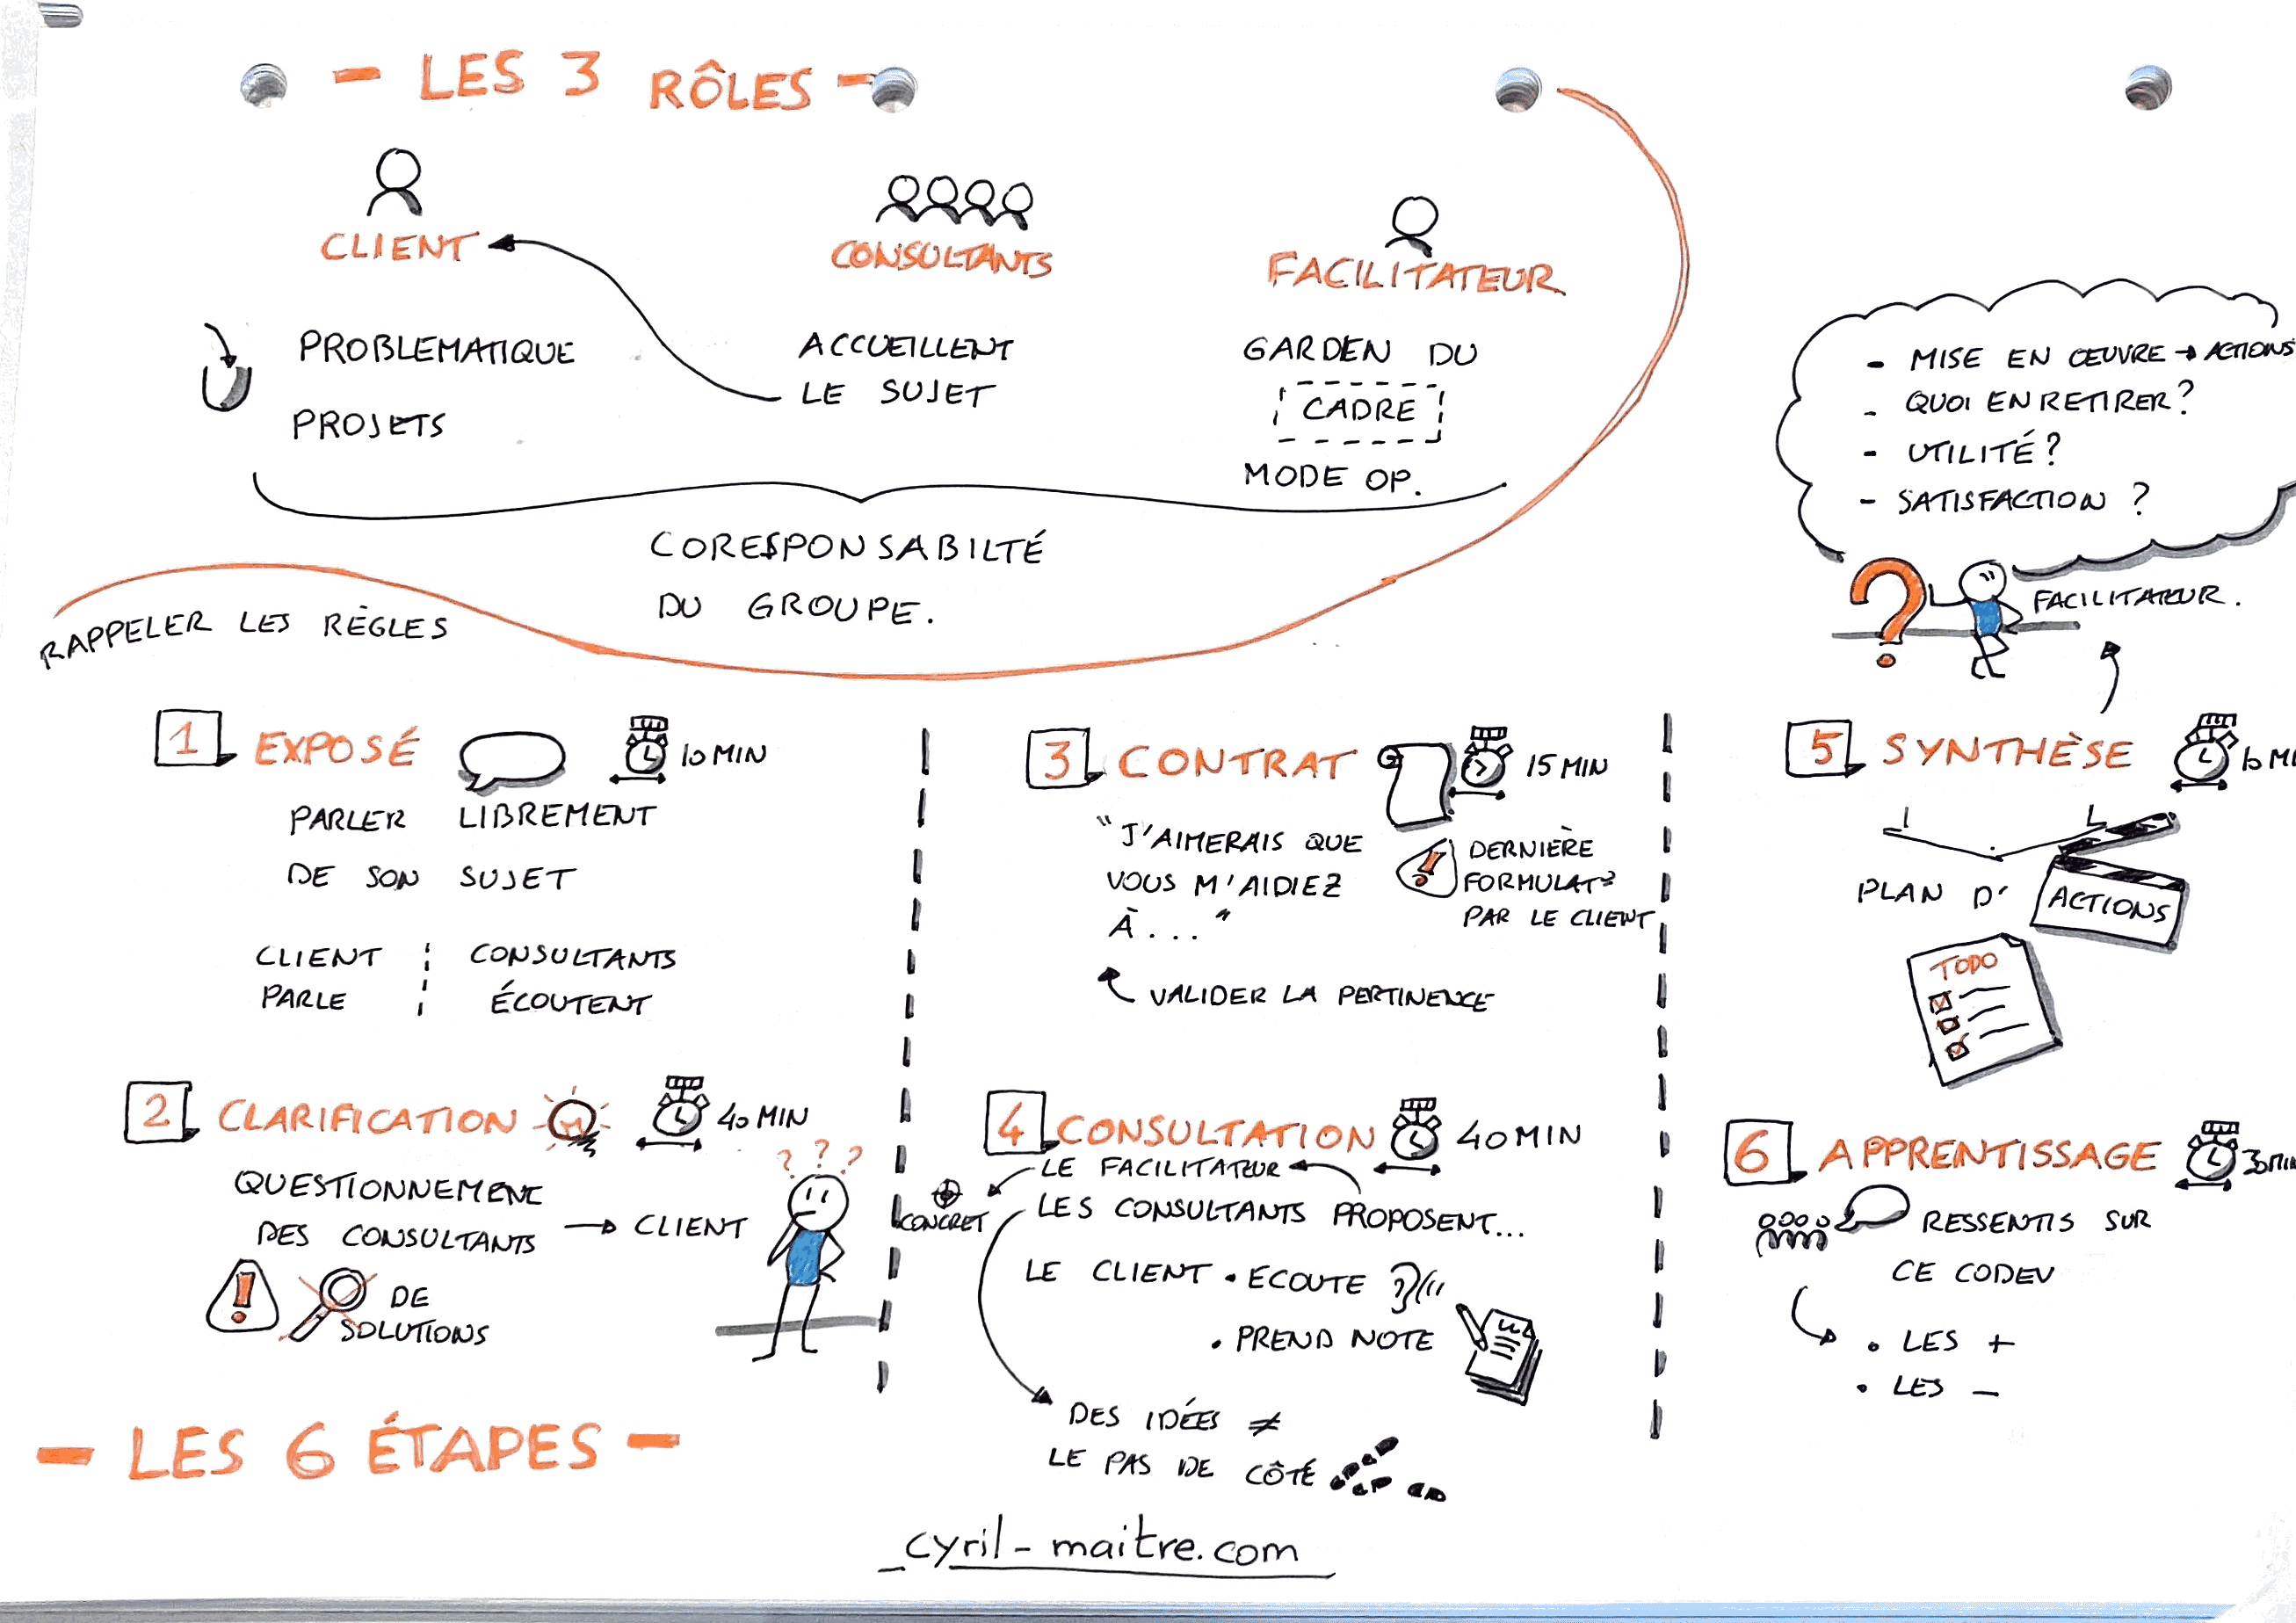 - LES 3 RÔLES -
CLIENT
CONSULTANTS
FACILITATEUR
PROBLEMATIQUE
PROJETS
ACCUEILLENT
LE SUJET
GARDEN DU
CADRE
MODE OP.
CORESPONSABILTÉ
DU GROUPE.
RAPPELER LES RÈGLES
- MISE EN ŒUVRE → ACTIONS
- QUOI EN RETIRER?
- UTILITÉ?
- SATISFACTION ?
FACILITATEUR.
1 EXPOSÉ 10 MIN
PARLER LIBREMENT
DE SON SUJET
CLIENT PARLE
CONSULTANTS ÉCOUTENT
2 CLARIFICATION 40 MIN
? ? ?
QUESTIONNEMENT
DES CONSULTANTS → CLIENT
! DE
SOLUTIONS
3 CONTRAT 15 MIN
"J'AIMERAIS QUE
VOUS M'AIDIEZ
À ..."
! DERNIÈRE
FORMULAT°
PAR LE CLIENT
VALIDER LA PERTINENCE
4 CONSULTATION 40 MIN
LE FACILITATEUR
CONCRET
LES CONSULTANTS PROPOSENT...
LE CLIENT • ECOUTE
• PREND NOTE
DES IDÉES ≠
LE PAS DE CÔTÉ
5 SYNTHÈSE
PLAN D' ACTIONS
TODO
6 APPRENTISSAGE 30 MIN
RESSENTIS SUR
CE CODEV
• LES +
• LES -
- LES 6 ÉTAPES -
cyril-maitre.com